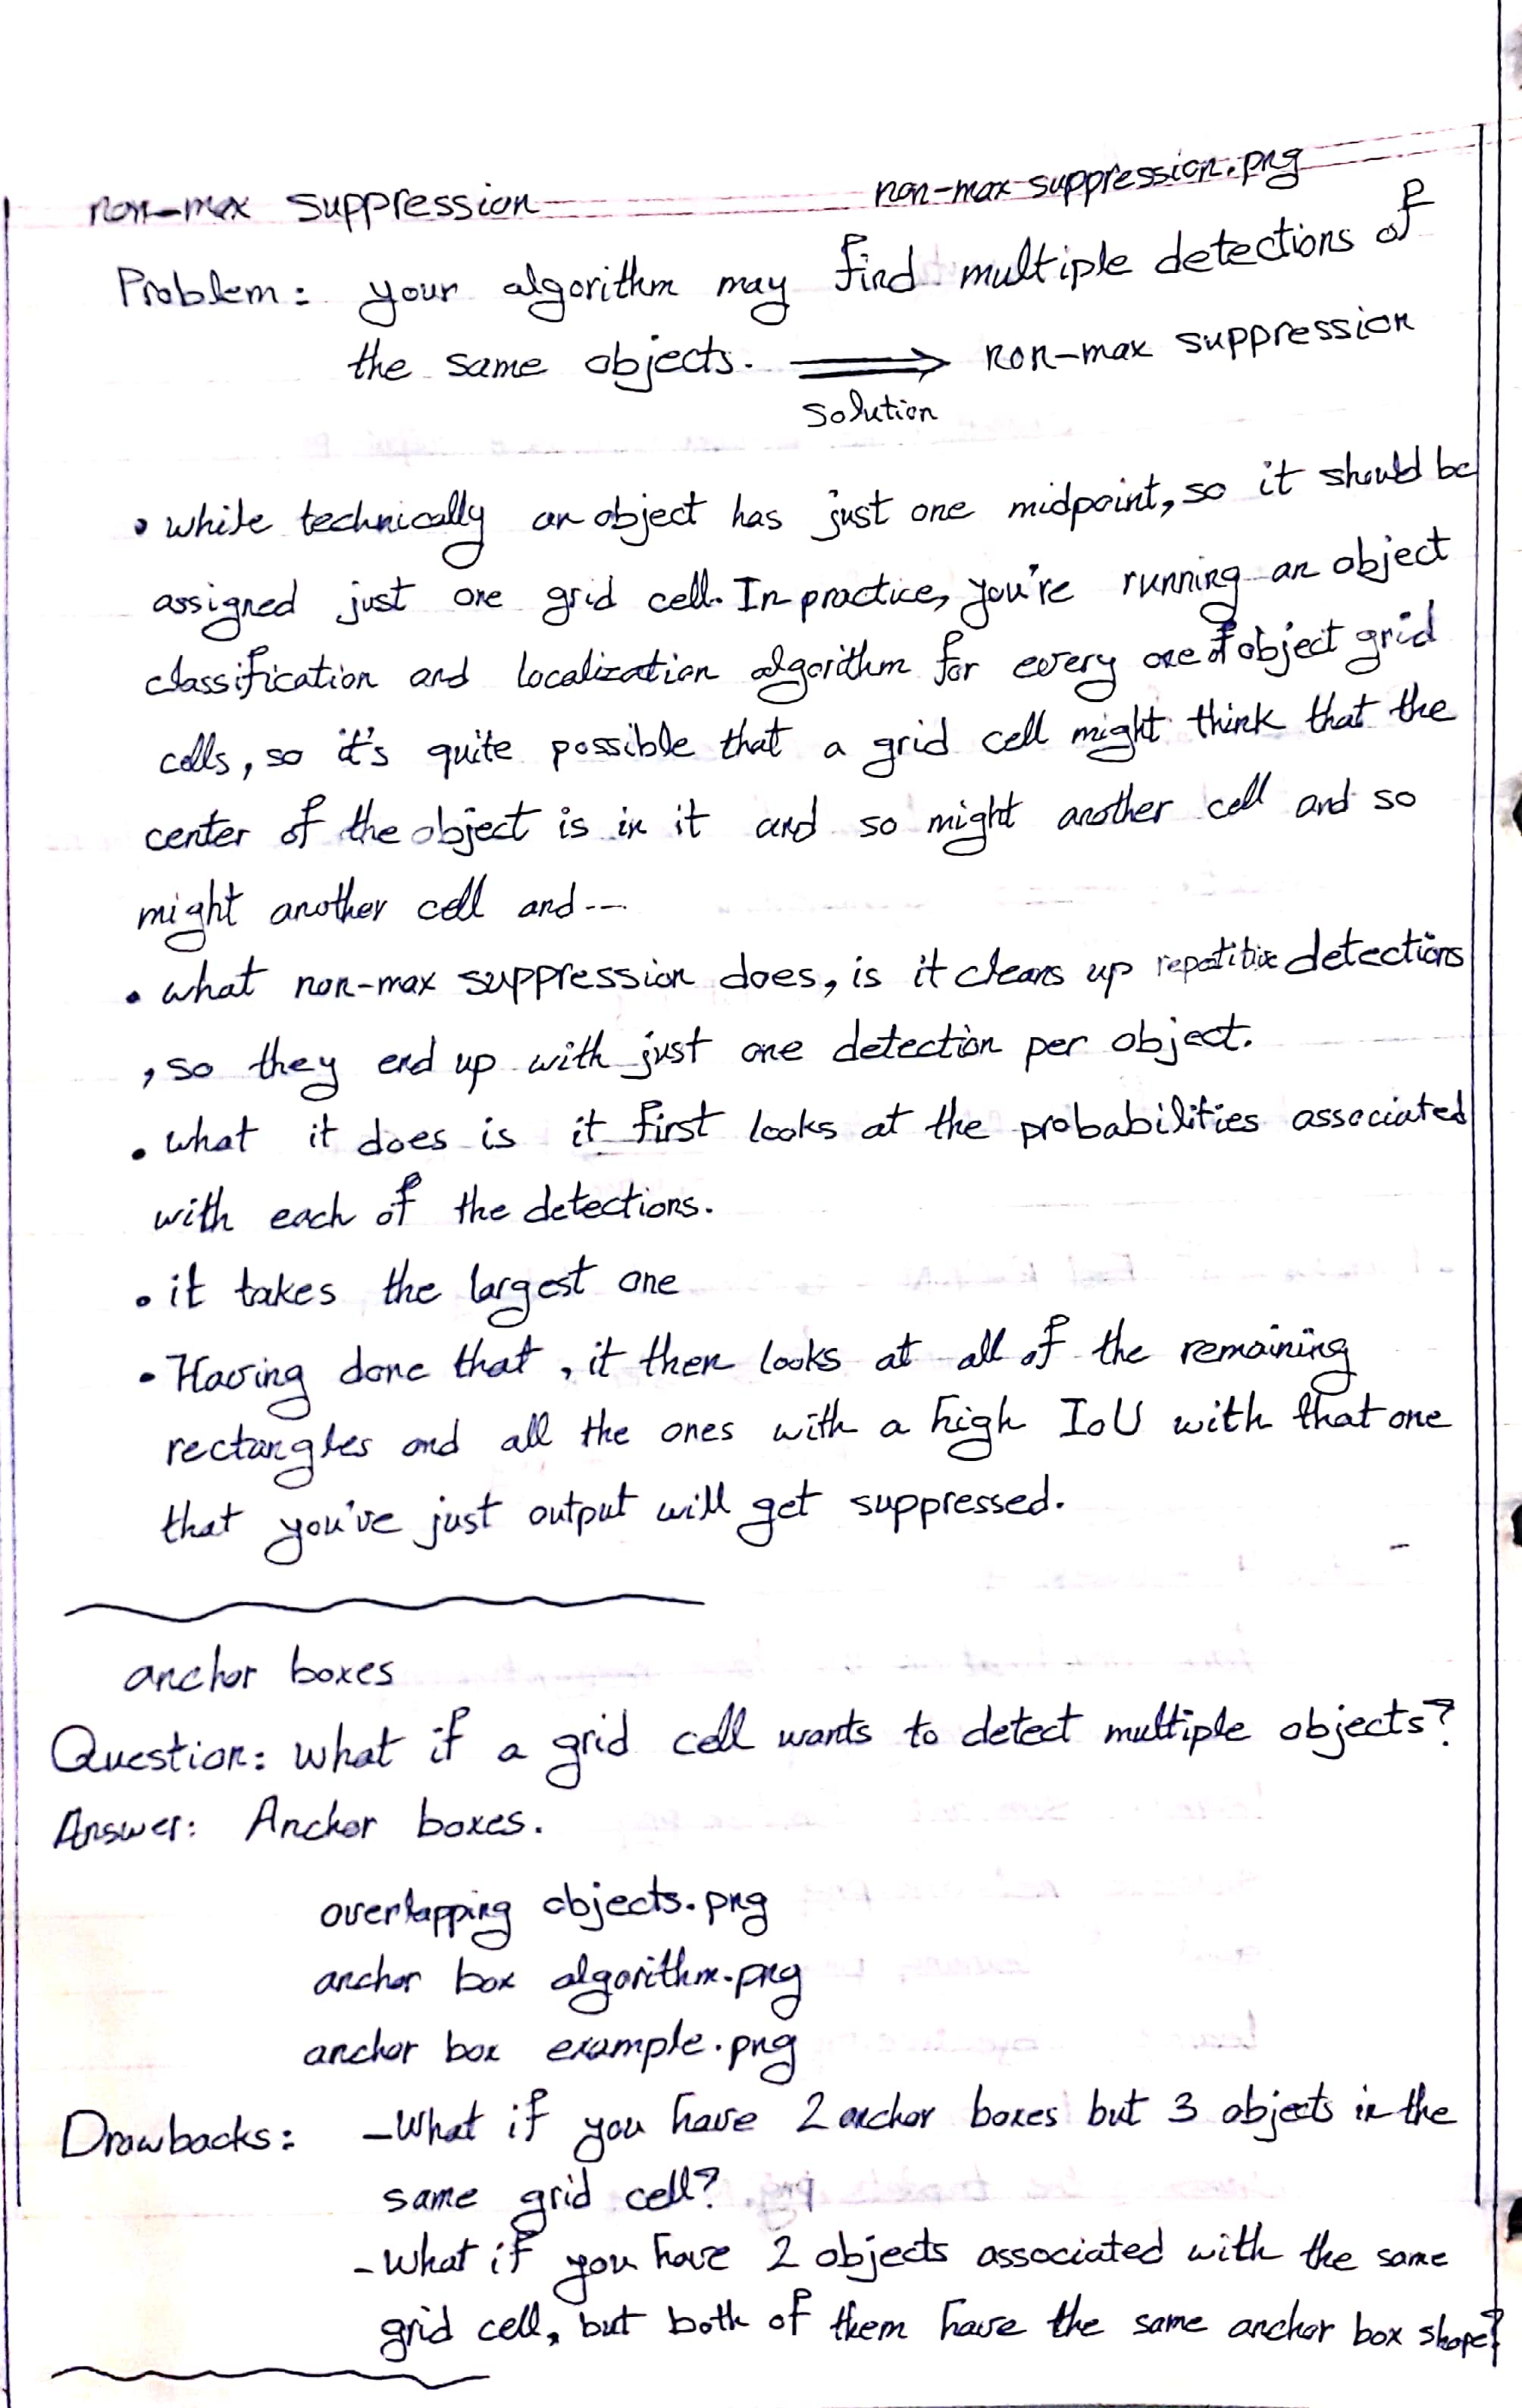 non-max suppression
non-max suppression.png
Problem: your algorithm may find multiple detections of
the same objects. ⟹ non-max suppression
solution
• while technically an object has just one midpoint, so it should be
assigned just one grid cell. In practice, you're running an object
classification and localization algorithm for every one of object grid
cells, so it's quite possible that a grid cell might think that the
center of the object is in it and so might another cell and so
might another cell and ---
• what non-max suppression does, is it cleans up repetitive detections
, so they end up with just one detection per object.
• what it does is it first looks at the probabilities associated
with each of the detections.
• it takes the largest one
• Having done that, it then looks at all of the remaining
rectangles and all the ones with a high IoU with that one
that you've just output will get suppressed.
anchor boxes
Question: what if a grid cell wants to detect multiple objects?
Answer: Anchor boxes.
overlapping objects.png
anchor box algorithm.png
anchor box example.png
Drawbacks: - What if you have 2 anchor boxes but 3 objects in the
same grid cell?
- What if you have 2 objects associated with the same
grid cell, but both of them have the same anchor box shape?